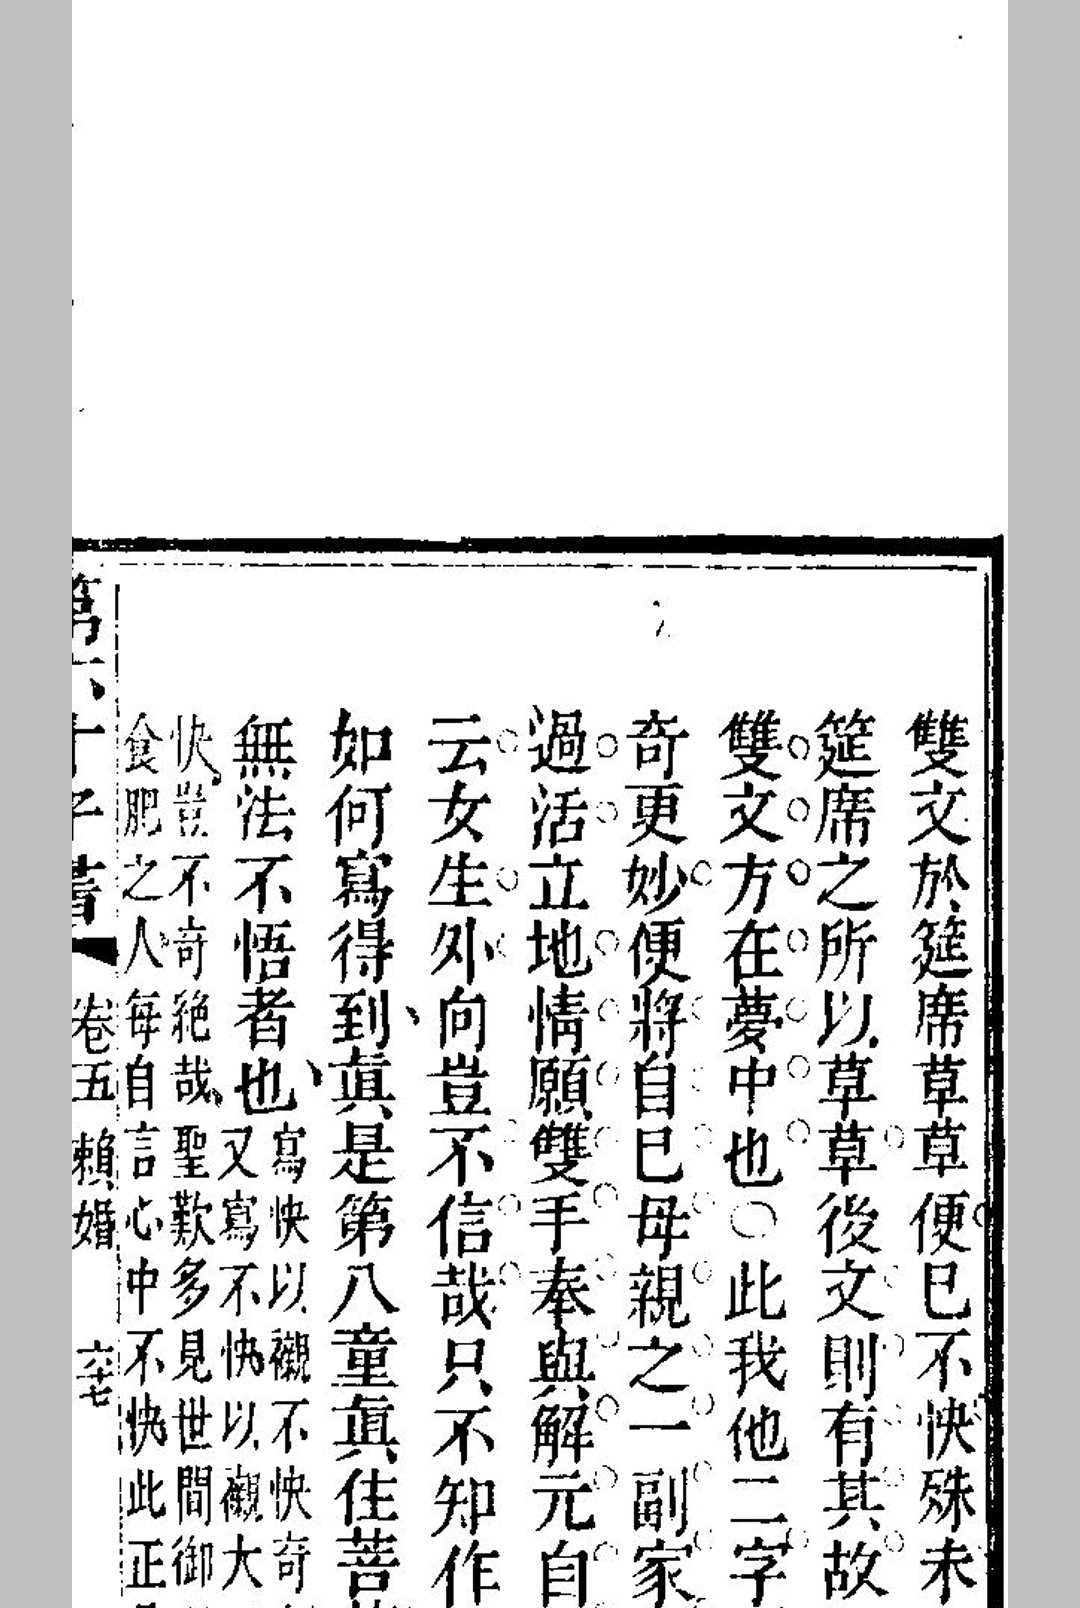 雙文於筵席草草便已不快殊未
筵席之所以草草後文則有其故
雙文方在夢中也〇此我他二字
奇更妙便將自已母親之一副家
過活立地情願雙手奉與解元自
云女生外向豈不信哉只不知作
如何寫得到真是第八童真住菩
無法不悟者也
寫快以襯不快奇
又寫不快以襯大
快豈不奇絕哉聖歎多見世間御
食肥之人每自言心中不快此正
第六才子書 卷五 賴婚 六十七